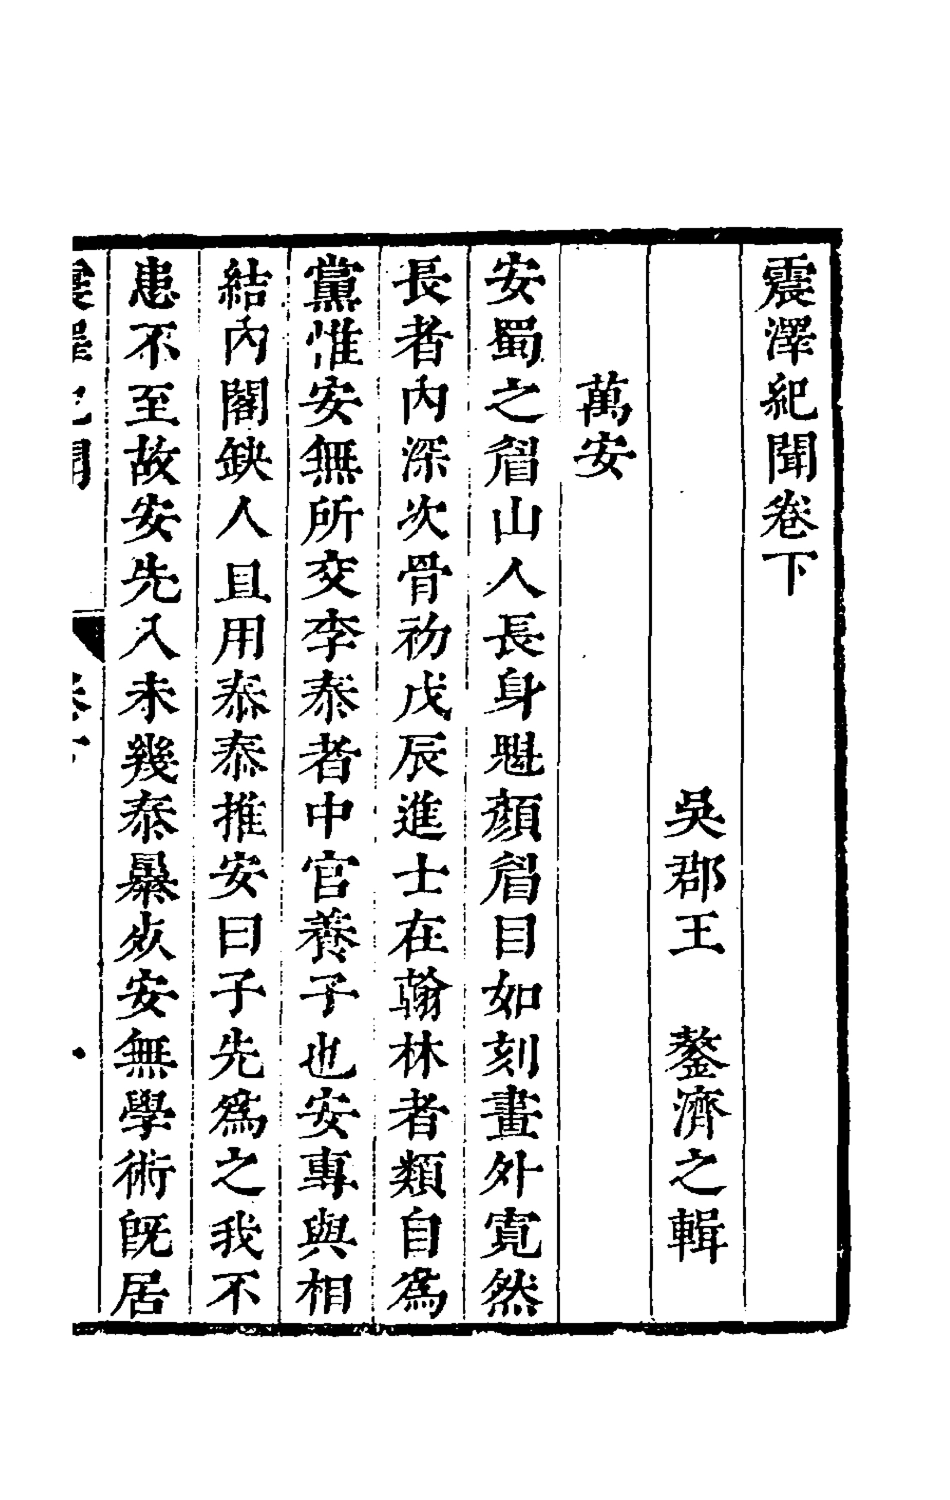 震澤紀聞卷下
吳郡王　鏊濟之輯
萬安
安蜀之眉山人長身魁顏眉目如刻畫外寬然
長者內深次骨初戊辰進士在翰林者類自爲
黨惟安無所交李泰者中官養子也安專與相
結內閣缺人且用泰泰推安曰子先爲之我不
患不至故安先入未幾泰暴死安無學術旣居